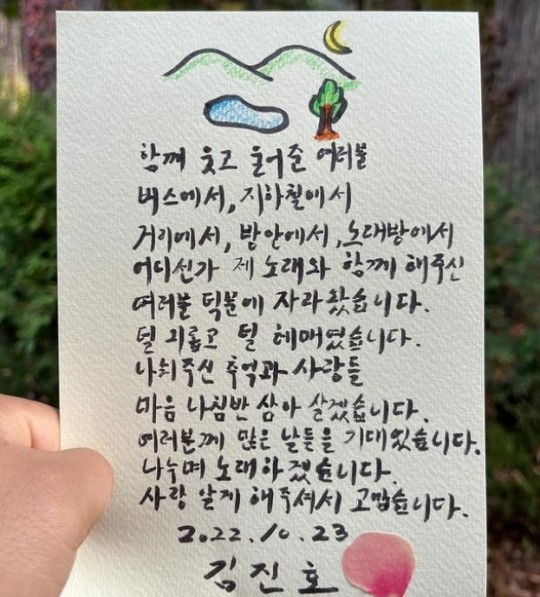 함께 웃고 울어준 여러분
버스에서, 지하철에서
거리에서, 방안에서, 노래방에서
어디선가 제 노래와 함께 해주신
여러분 덕분에 자라왔습니다.
덜 괴롭고 덜 헤매였습니다.
나눠주신 추억과 사랑들
마음 나침반 삼아 살겠습니다.
여러분께 많은 날들을 기대있습니다.
나누며 노래하겠습니다.
사랑 알게 해주셔서 고맙습니다.
2022.10.23
김진호